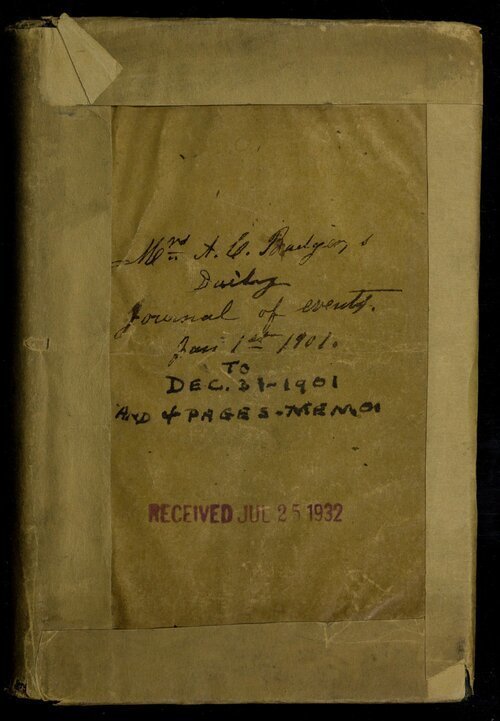 Mrs A. C. Badger,s
Daily
Journal of events.
Jan 1st 1901.
TO
DEC. 31-1901
AND 4 PAGES-MEMO
RECEIVED JUL 25 1932